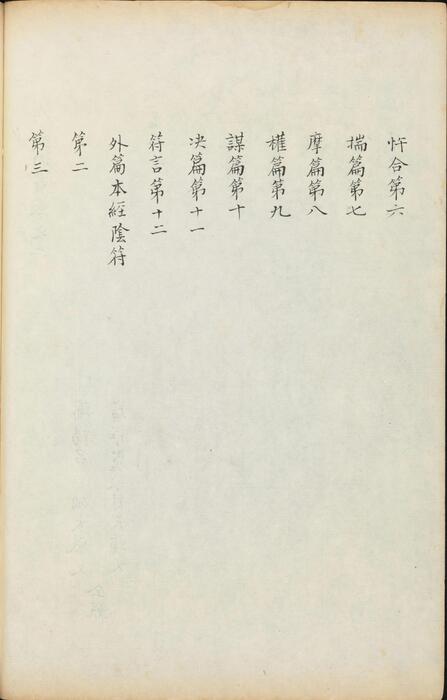 忤合第六
揣篇第七
摩篇第八
權篇第九
謀篇第十
决篇第十一
符言第十二
外篇本經陰符
第二
第三